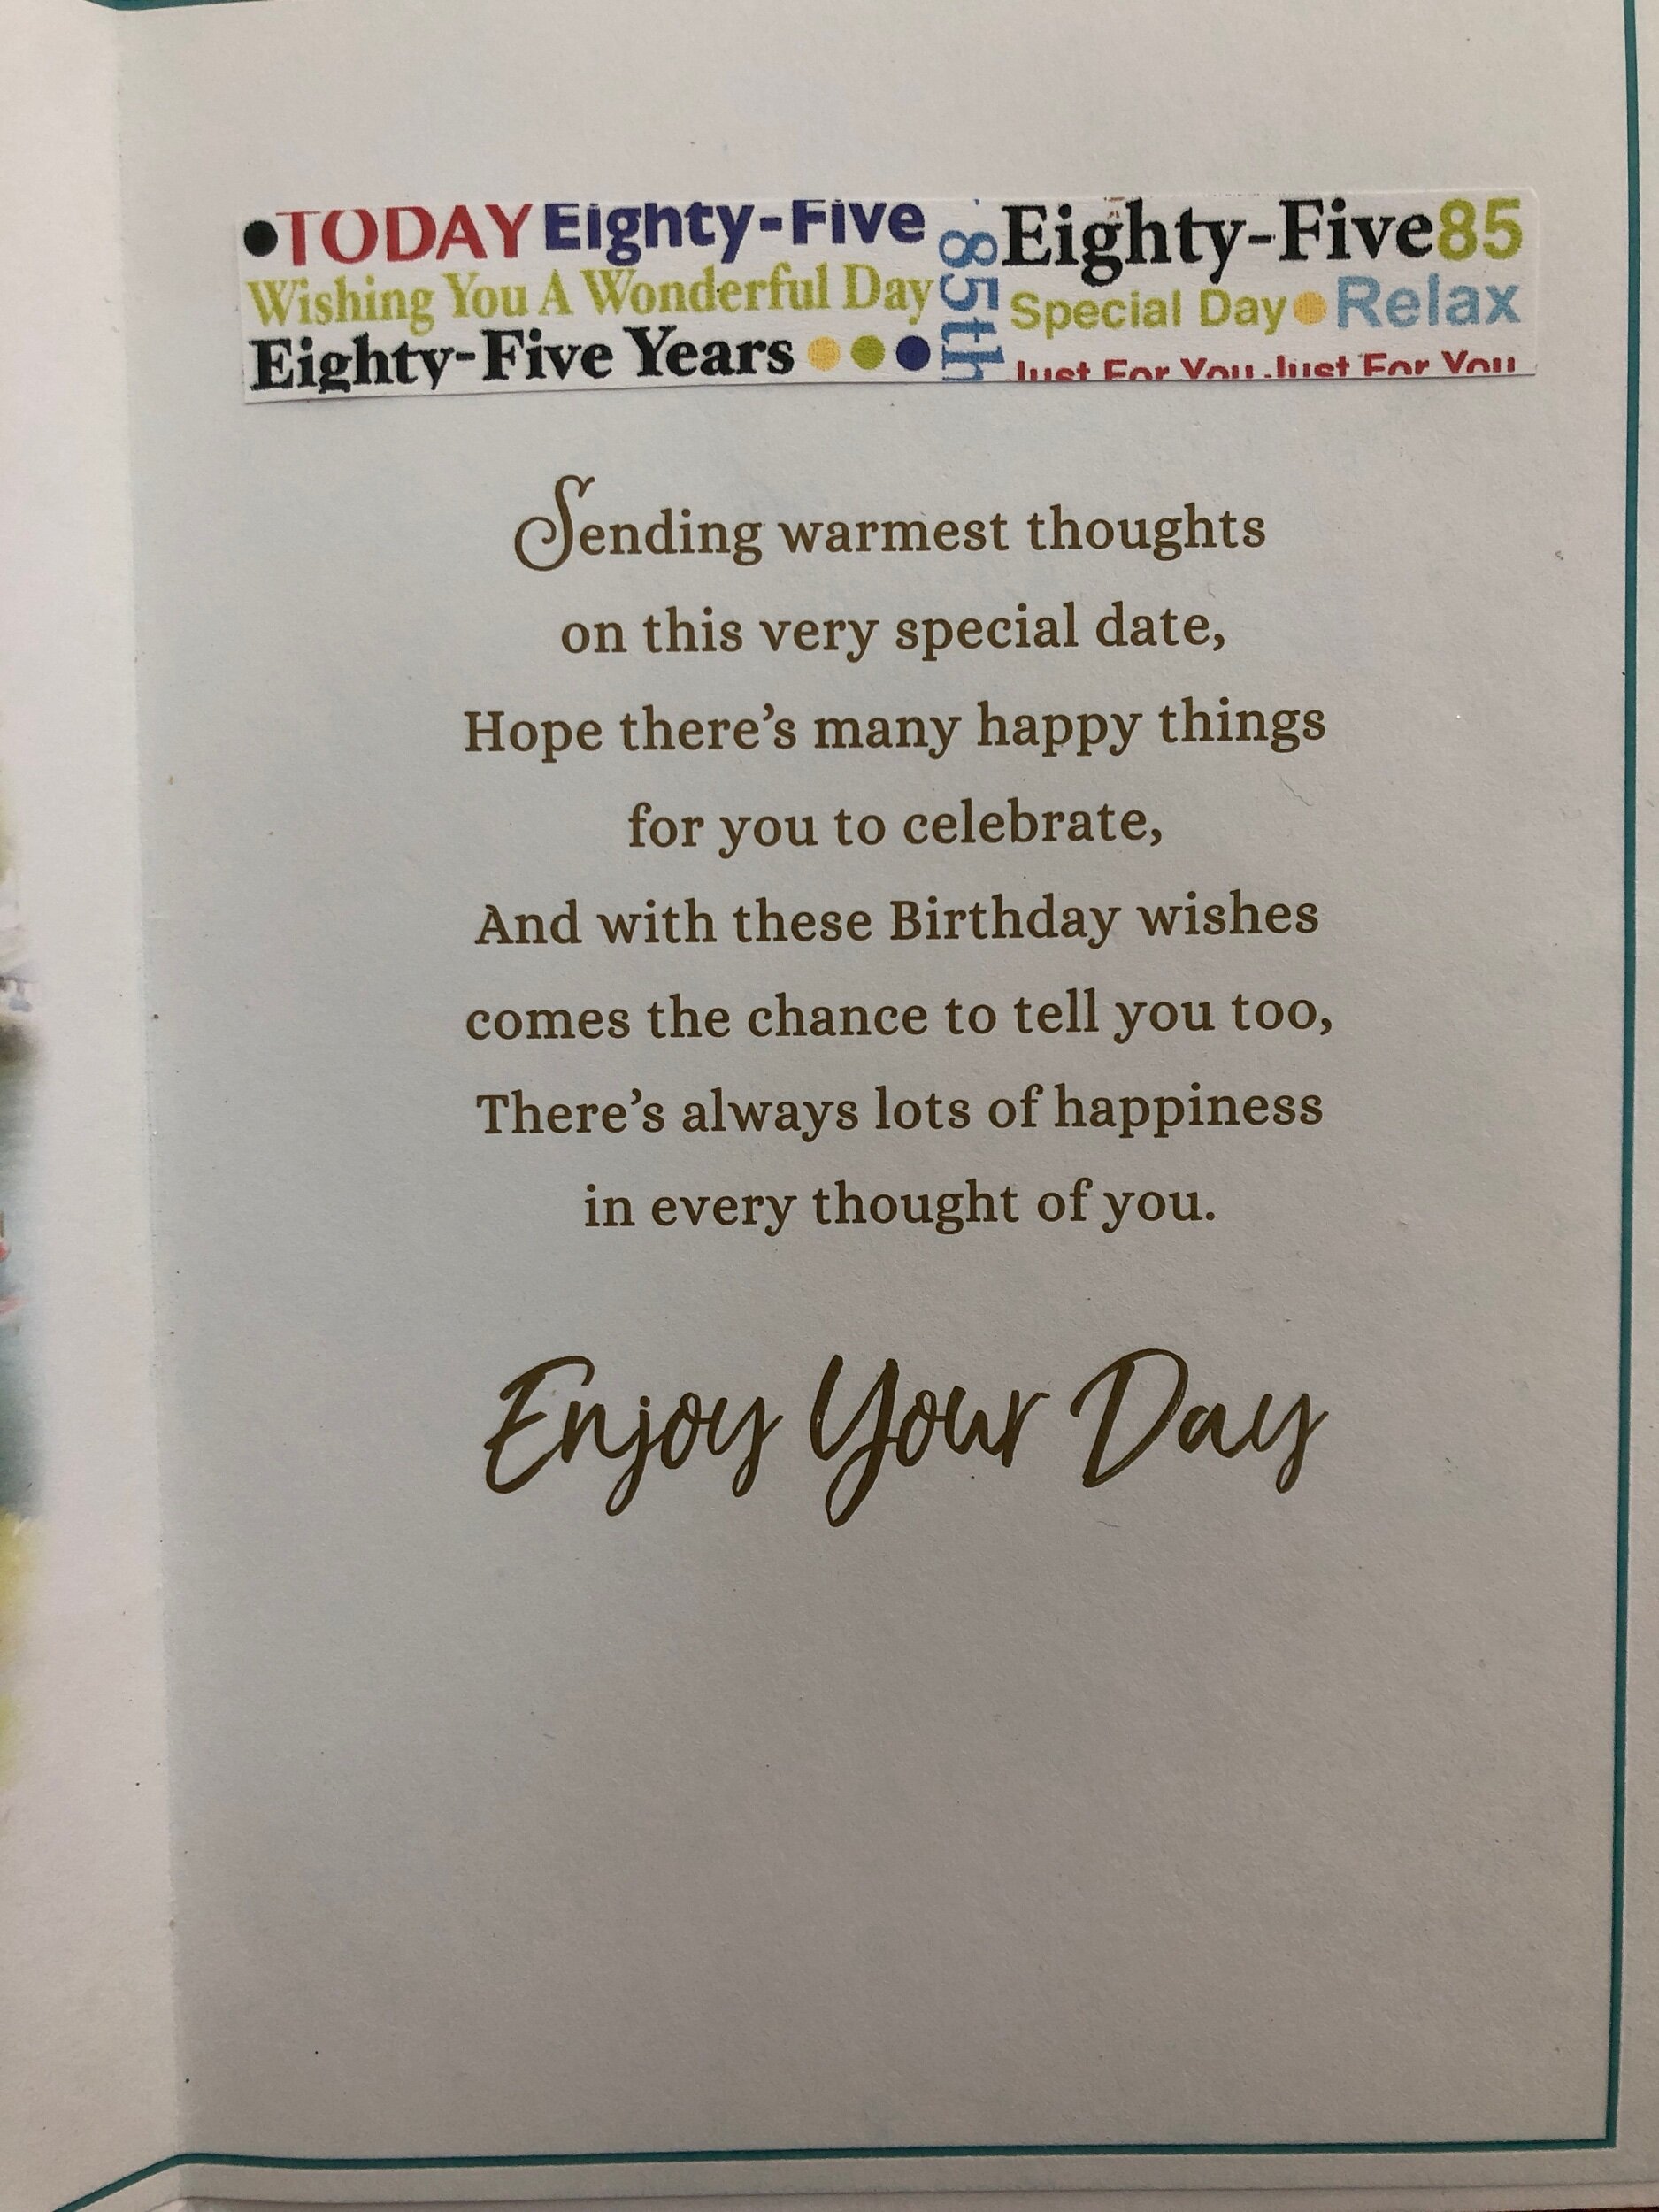 TODAY Eighty-Five
Wishing You A Wonderful Day
Eighty-Five Years
85th
Eighty-Five 85
Special Day Relax
Just For You Just For You
Sending warmest thoughts
on this very special date,
Hope there's many happy things
for you to celebrate,
And with these Birthday wishes
comes the chance to tell you too,
There's always lots of happiness
in every thought of you.
Enjoy Your Day